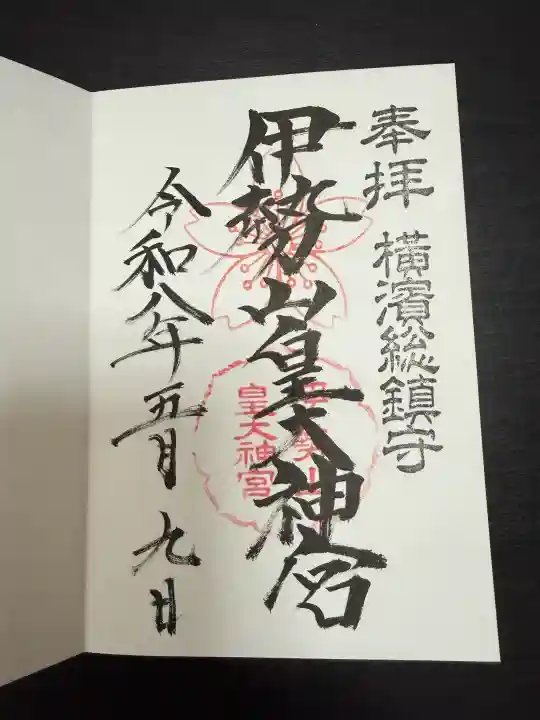 奉拝 横濱総鎮守
伊勢山皇大神宮
伊勢山
皇大神宮
令和八年五月九日